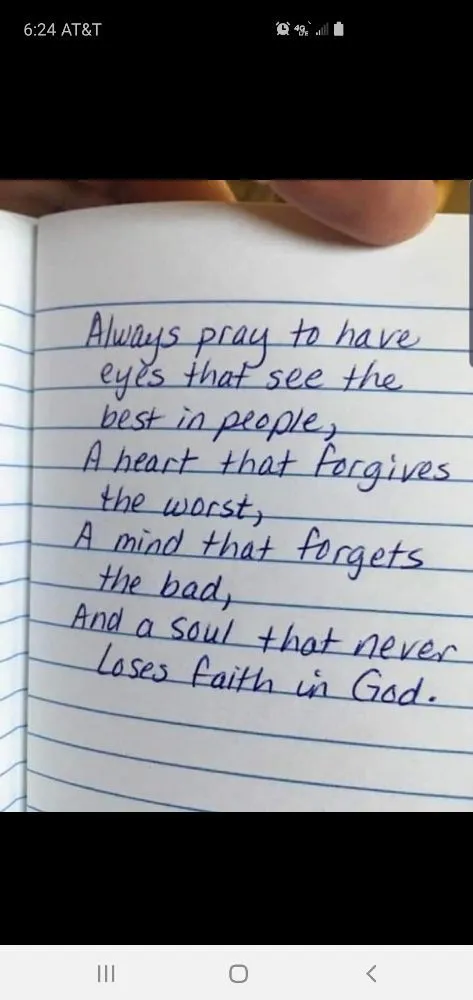 6:24 AT&T
Always pray to have
eyes that see the
best in people,
A heart that forgives
the worst,
A mind that forgets
the bad,
And a soul that never
loses faith in God.